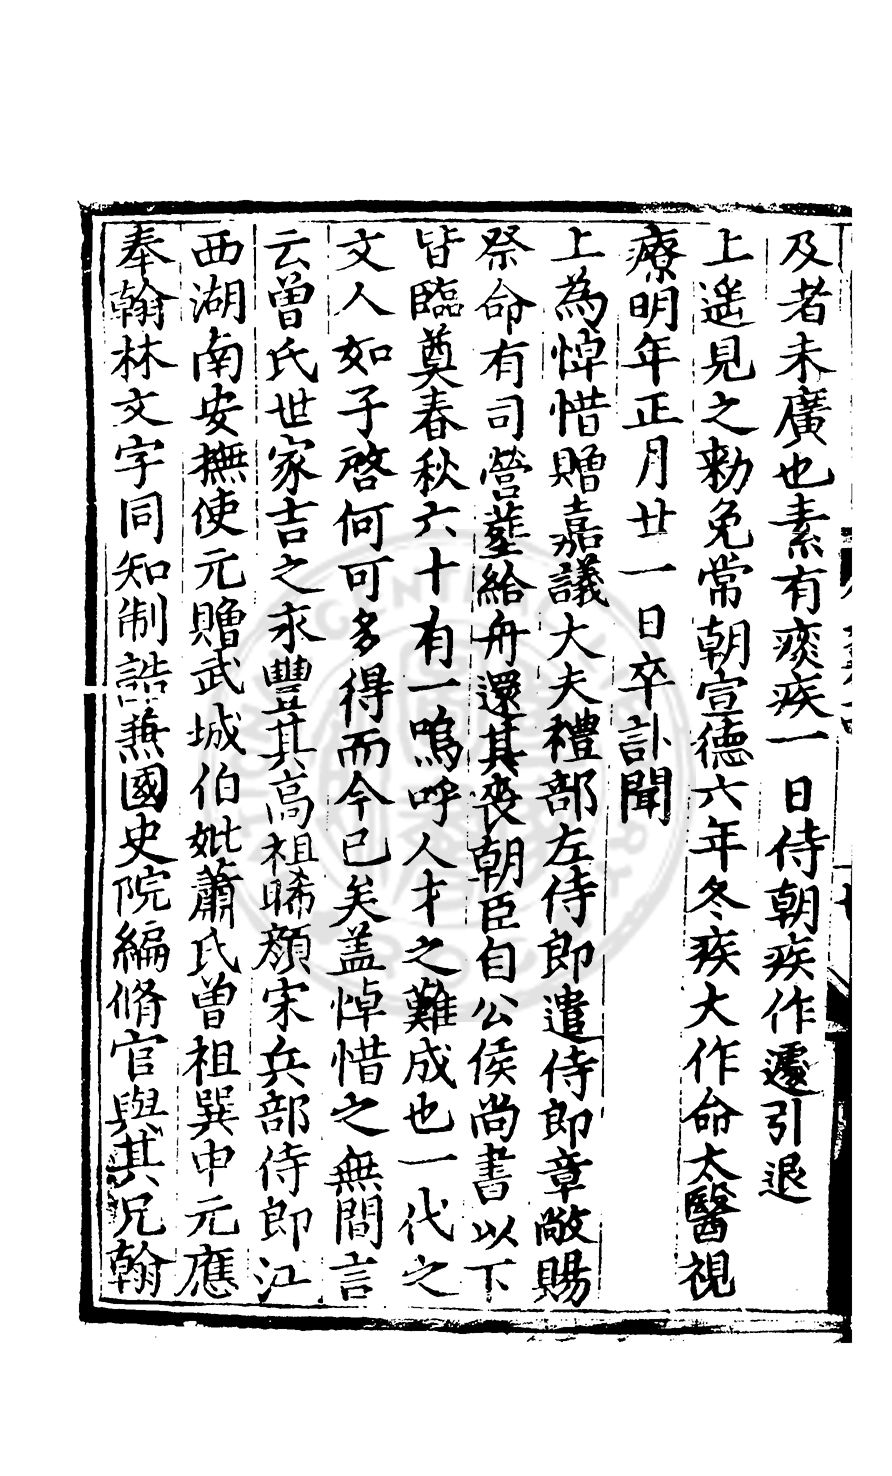 及者未廣也素有痰疾一日侍朝疾作遽引退
上遥見之勑免常朝宣德六年冬疾大作命太醫視
療明年正月廿一日卒訃聞
上為悼惜贈嘉議大夫禮部左侍郎遣侍郎章敞賜
祭命有司營塟給舟還其喪朝臣自公侯尚書以下
皆臨奠春秋六十有一嗚呼人才之難成也一代之
文人如子啓何可多得而今已矣盖悼惜之無間言
云曾氏世家吉之永豐其高祖晞顔宋兵部侍郎江
西湖南安撫使元贈武城伯妣蕭氏曾祖巽申元應
奉翰林文字同知制誥兼國史院編脩官與其兄翰